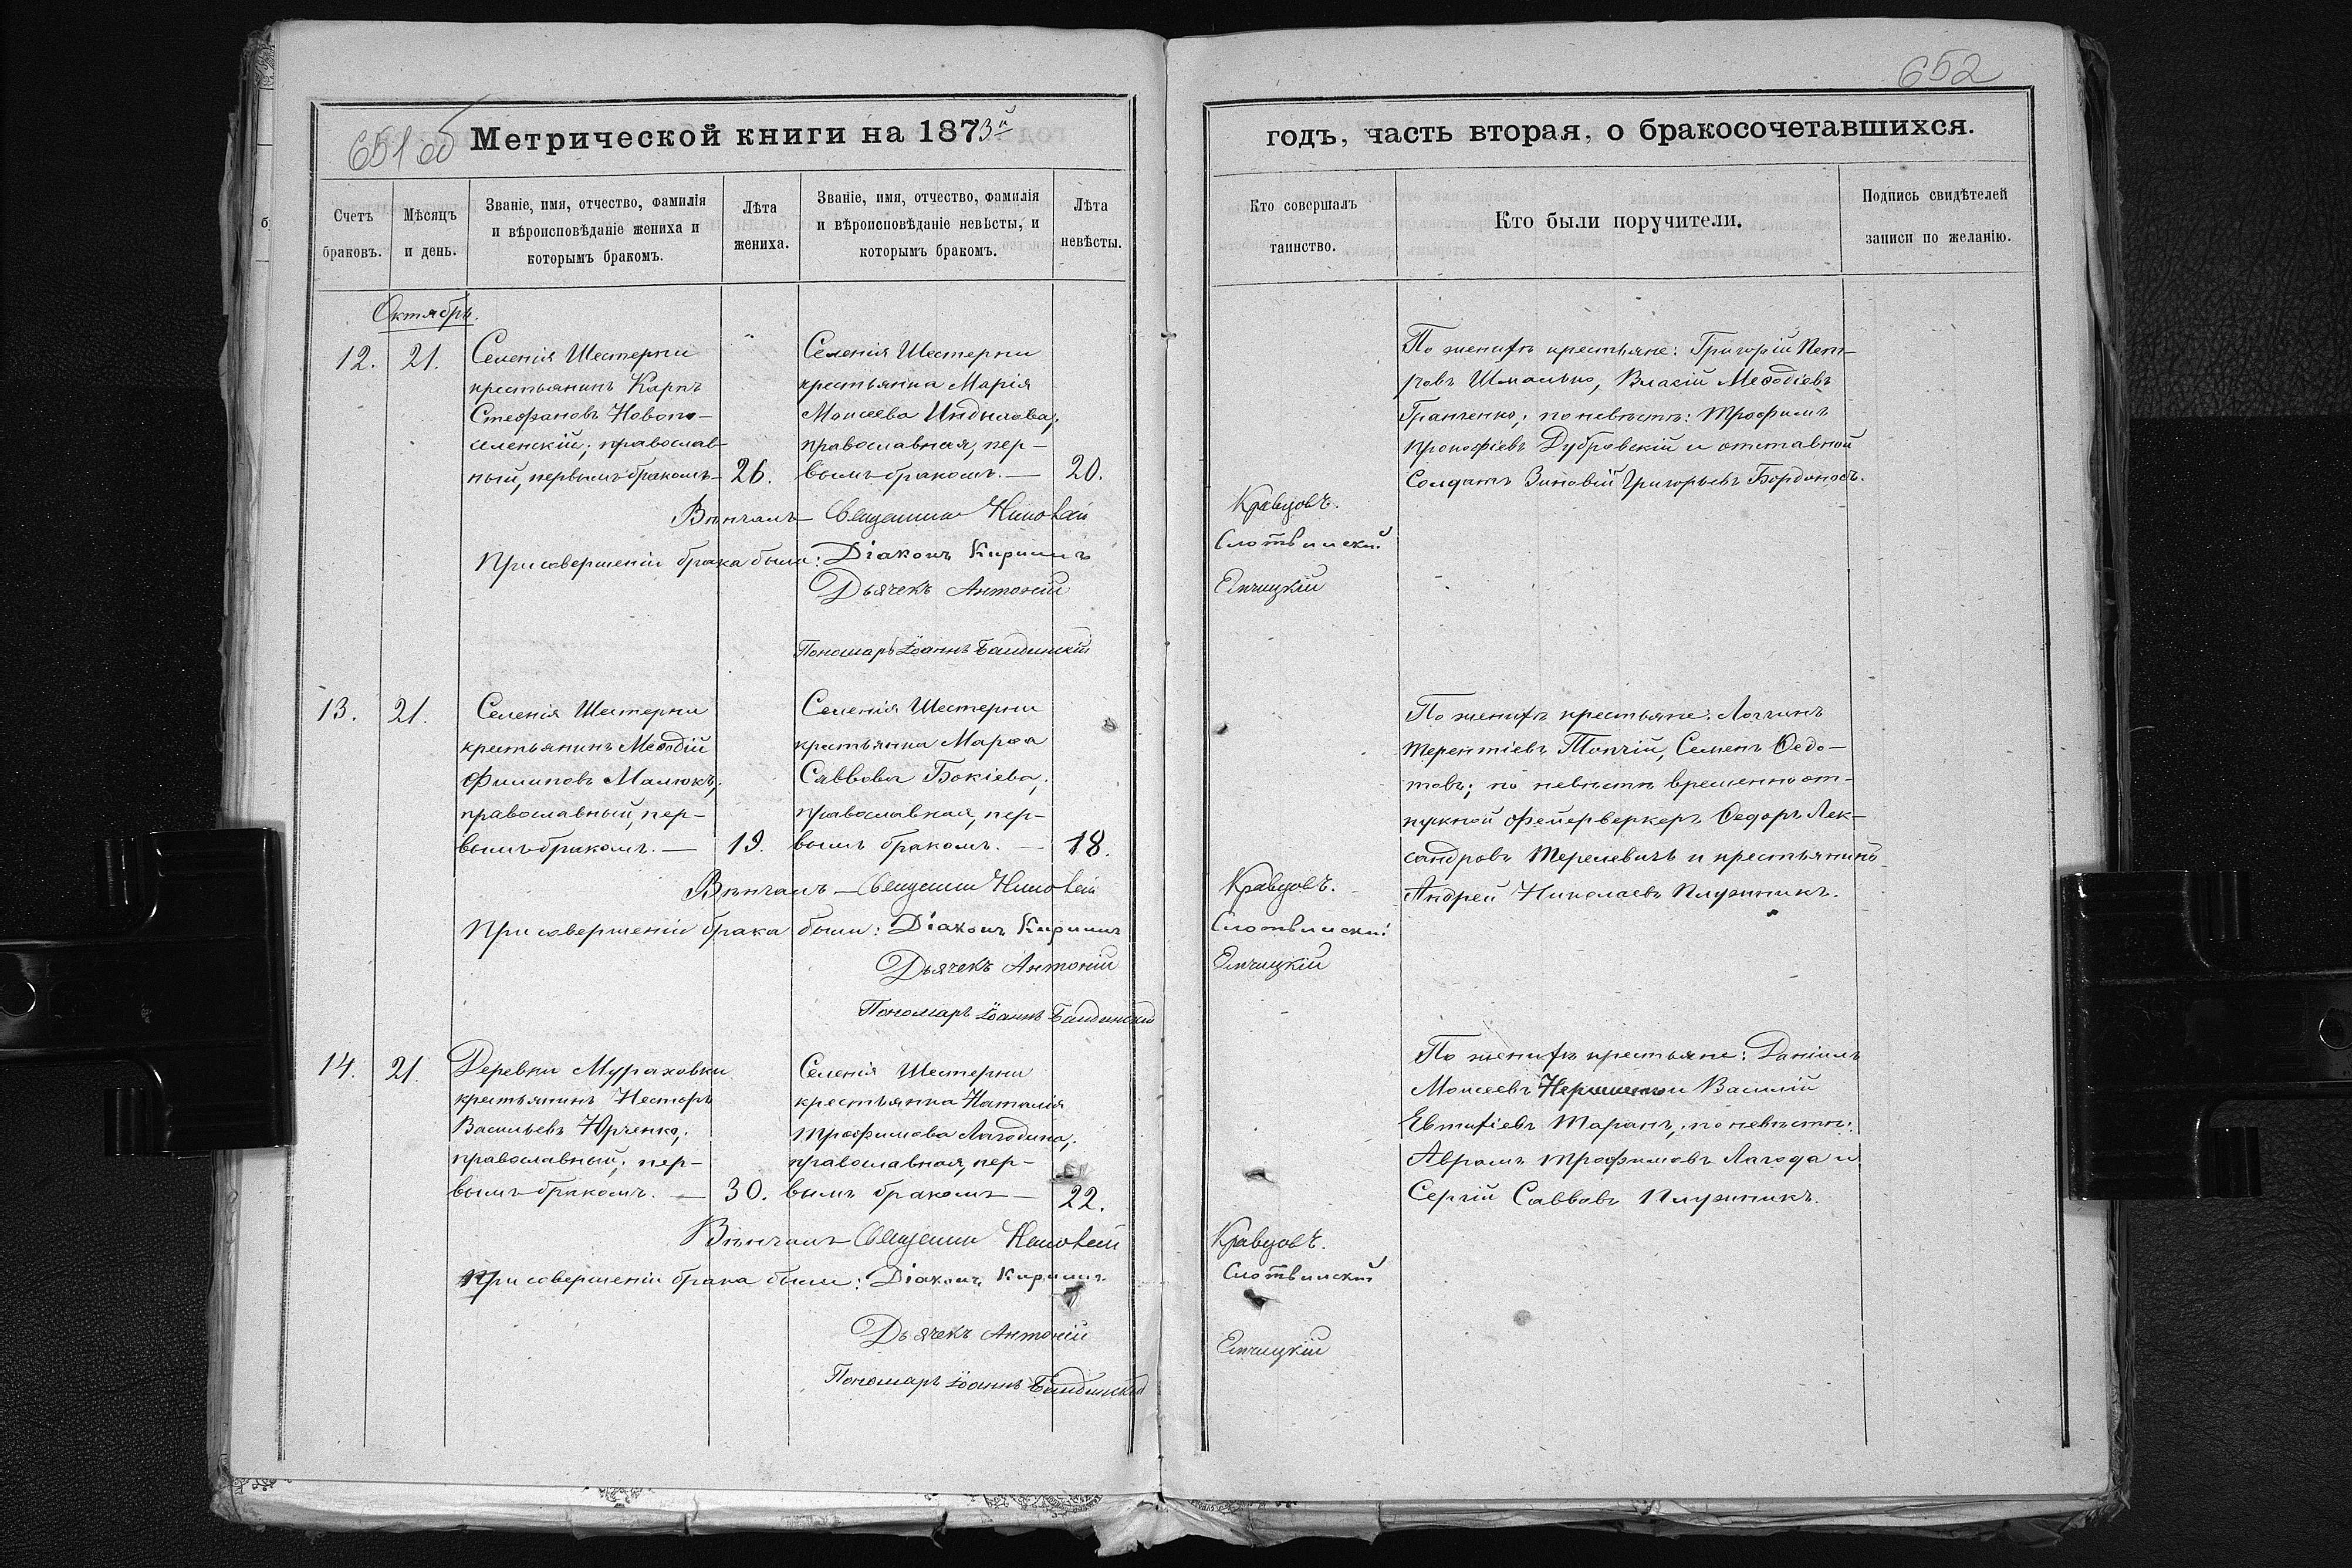 651 об
Метрической книги на 1873й
Счетъ браковъ.
Мѣсяцъ и день.
Званіе, имя, отчество, фамилія
и вѣроисповѣданіе жениха и
которымъ бракомъ.
Лѣта
жениха.
Званіе, имя, отчество, фамилія
и вѣроисповѣданіе невѣсты, и
которымъ бракомъ.
Лѣта
невѣсты.
Октябрь.
12. 21.
Селенія Шестерни
крестьянинъ Карпъ
Стефановъ Новопо-
селенскій, православ-
ный, первымъ бракомъ- 26.
Селенія Шестерни
крестьянка Марія
Моисеева Индылова;
православная, пер-
вымъ бракомъ. — 20.
Вѣнчалъ- Священник Николай
При совершеніи брака были: Діаконъ Кириллъ
Дьячекъ Антоній
Пономарь Іоаннъ Балдинскій
13. 21.
Селенія Шестерни
крестьянинъ Меѳодій
Филиповъ Малюкъ;
православный, пер-
вымъ бракомъ. — 19.
Селенія Шестерни
крестьянка Марѳа
Саввова Бокіева;
православная, пер-
вымъ бракомъ. — 18.
Вѣнчалъ — Священник Николай
При совершеніи брака были: Діаконъ Кириллъ
Дьячекъ Антоній
Пономарь Іоаннъ Балдинскій
14. 21.
Деревни Мураховки
крестьянинъ Несторъ
Васильевъ Юрченко;
православный; пер-
вымъ бракомъ. — 30.
Селенія Шестерни
крестьянка Наталія
Трофимова Лагодина;
православная, пер-
вымъ бракомъ — 22.
Вѣнчалъ Священник Николай
При совершеніи брака были: Діаконъ Кириллъ
Дьячекъ Антоній
Пономарь Іоаннъ Балдинскій
652
годъ, часть вторая, о бракосочетавшихся.
Кто совершалъ
таинство.
Кто были поручители.
Подпись свидѣтелей
записи по желанію.
По женихѣ крестьяне: Григорій Пет-
ровъ Шмалько, Власій Меѳодіевъ
Гранченко; по невѣстѣ: Трофимъ
Прокофіевъ Дубровскій и отставной
Солдатъ Зиновій Григорьевъ Бордоносъ.
Кравцовъ.
Слотвинскій
Елчицкій
По женихѣ крестьяне: Логгинъ
Терентіевъ Топчій, Семенъ Ѳедо-
товъ; по невѣстѣ временноот-
пускной фейерверкеръ Ѳедоръ Лек-
сандровъ Терелевичъ и крестьянинъ
Андрей Николаевъ Плужникъ.
Кравцовъ.
Слотвинскій
Елчицкій
По женихѣ крестьяне: Даніилъ
Моисеевъ и Василій
Евтифіевъ Таранъ; по невѣстѣ:
Аврамъ Трофимовъ Лагода и
Сергій Саввовъ Плужникъ.
Кравцовъ.
Слотвинскій
Елчицкій